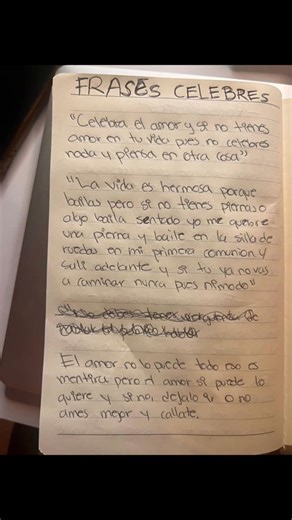 FRASES CELEBRES
"Celebra el amor y si no tienes
amor en tu vida pues no celebres
nada y piensa en otra cosa"
"La vida es hermosa porque
bailas pero si no tienes piernas o
algo baila sentado yo me quebre
una pierna y baile en la silla de
ruedas en mi primera comunion y
sali adelante y si tu ya no vas
a caminar nunca pues nimodo"
El amor no lo puede todo eso es
mentira pero el amor si puede lo
quiere y si no, dejalo ir o no
ames mejor y callate.